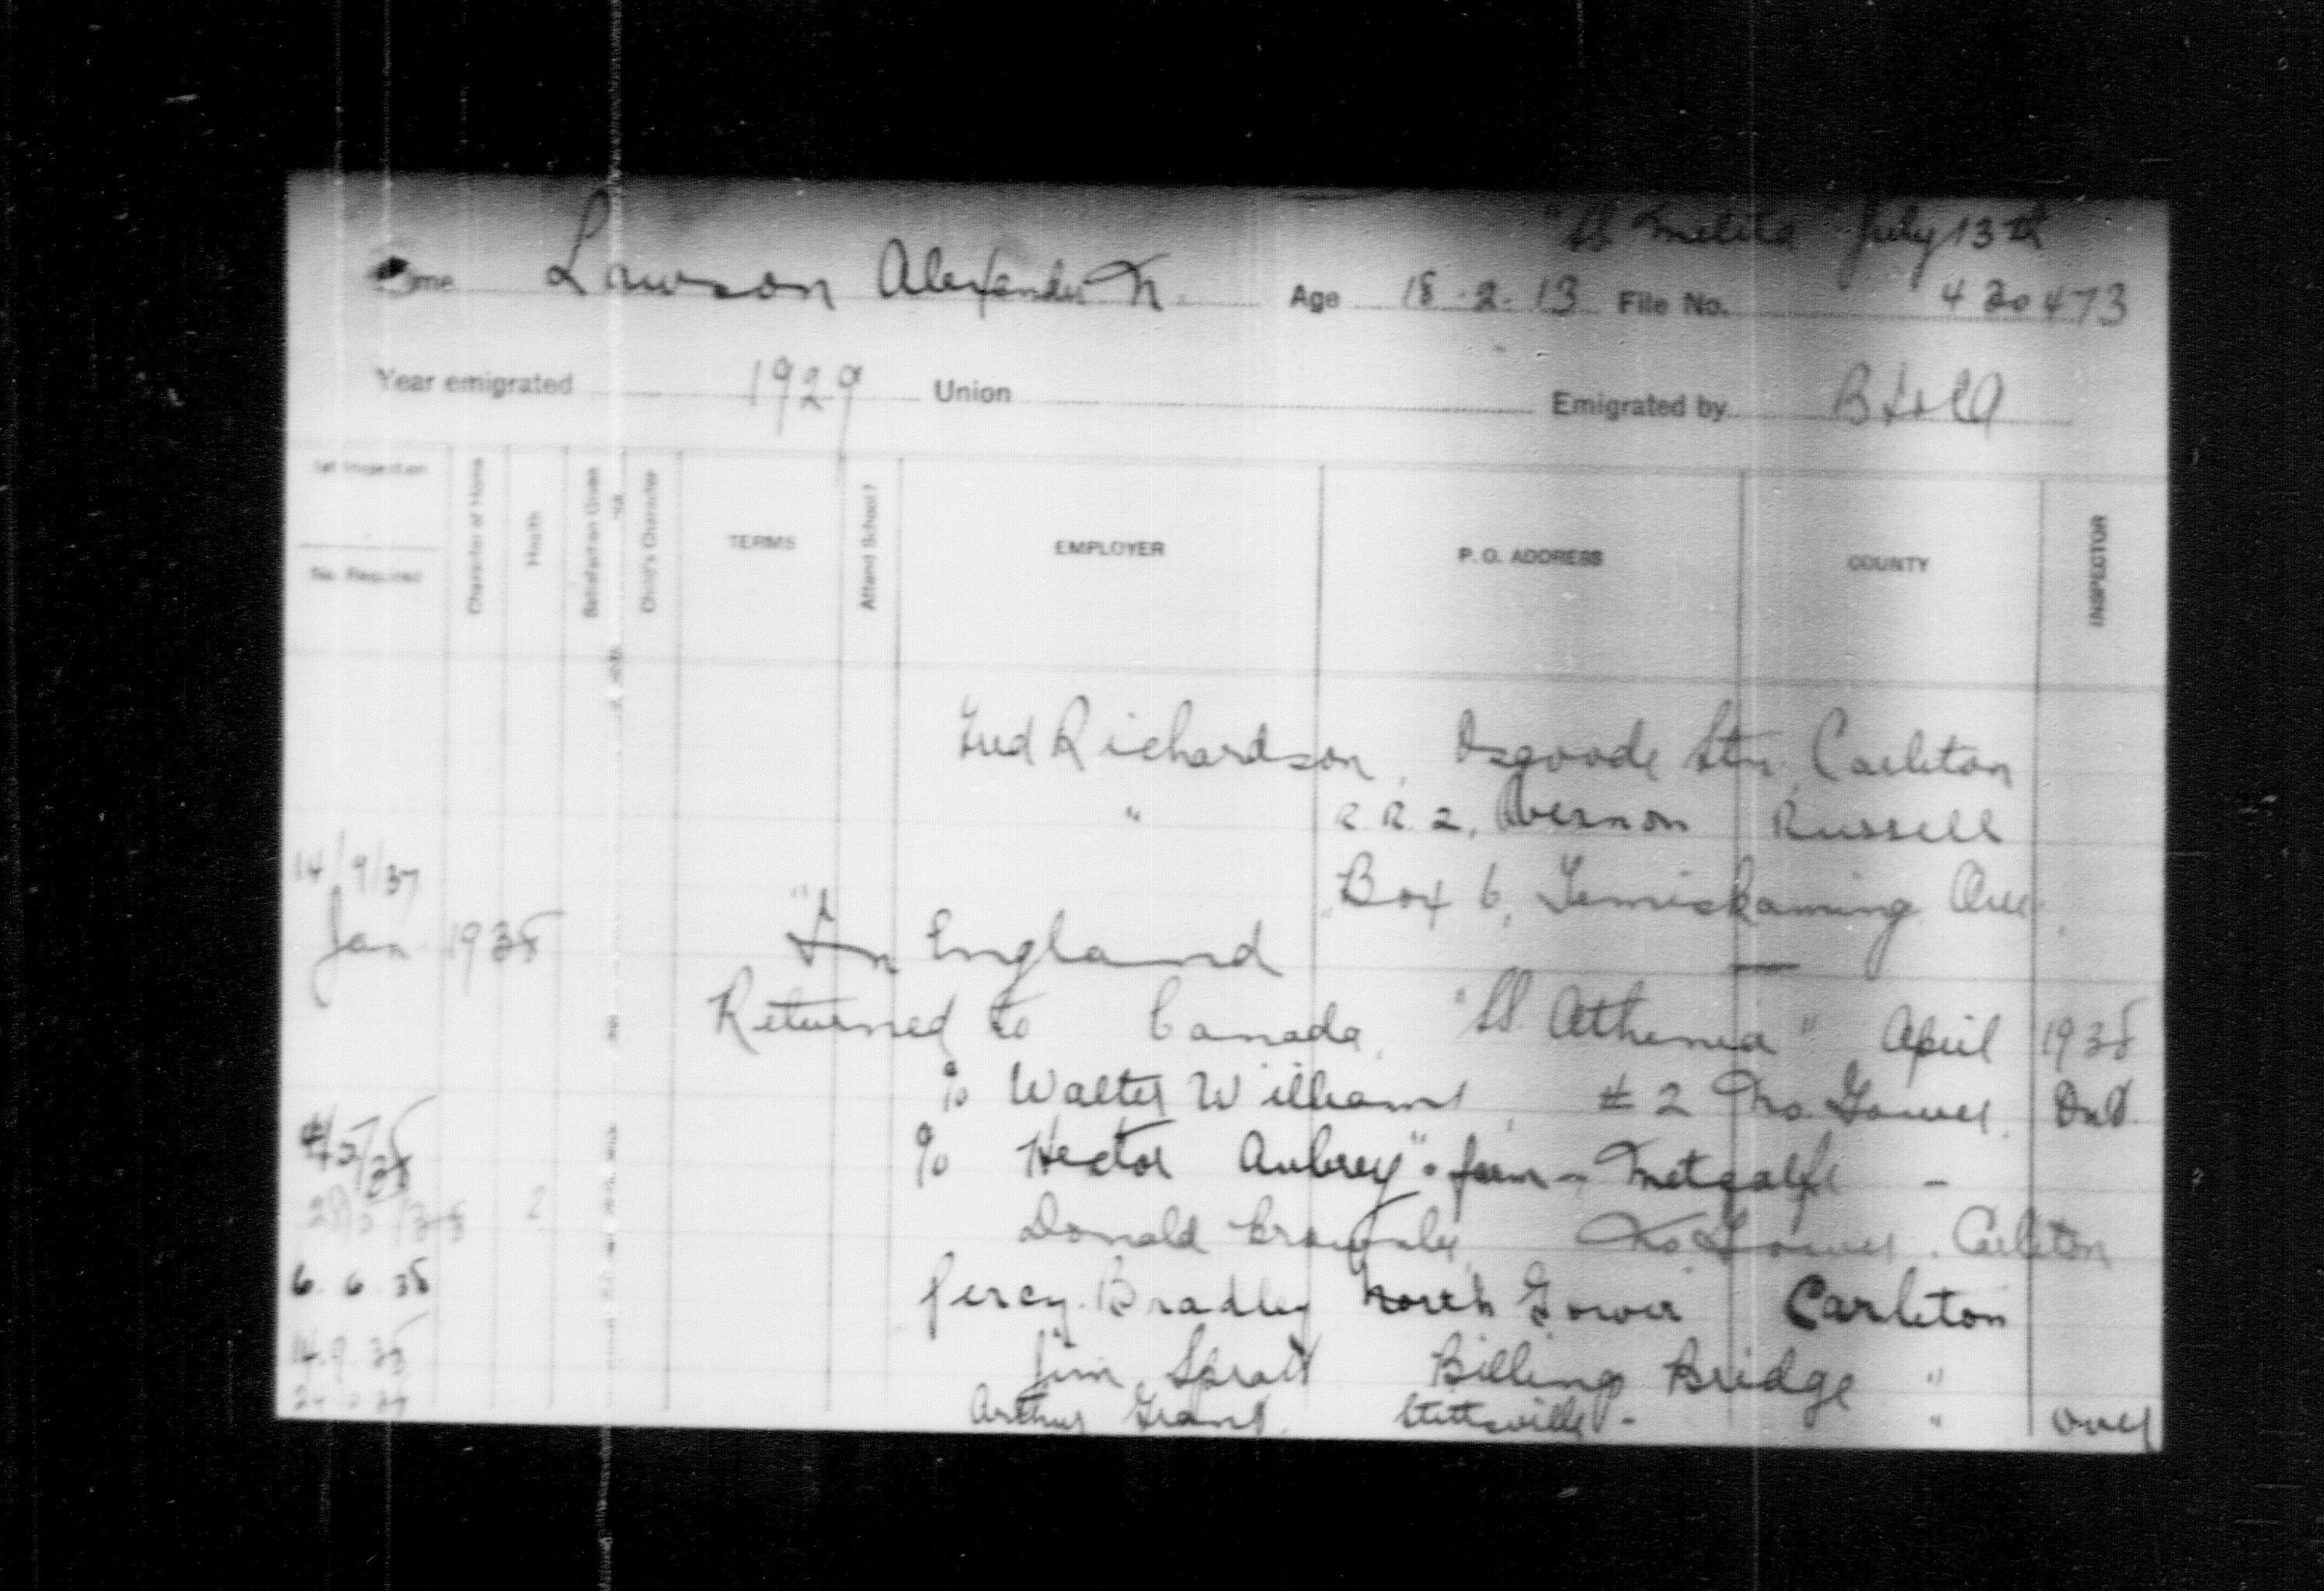 "SS Melita" July 13th
Name Lawson Alexander N. Age 18.2.13 File No. 420473
Year emigrated 1929 Union Emigrated by
1st Inspection
No. Required
Character of Home
Health
Satisfaction Given
Child's Character
TERMS
Attend School?
EMPLOYER
P. O. ADDRESS
COUNTY
INSPECTOR
Fred Richardson, Osgoode Stn. Carleton
" R.R. 2, Vernon Russell
14/9/37 Box 6, Temiskaming, Que.
Jan 1938 "In England
Returned to Canada, "SS. Athenia" April 1938
c/o Walter Williams, #2 No. Gower, Ont.
c/o Hector Aubrey" farm - Metcalfe -
Donald No Gower. Carleton
6. 6. 38 Percy Bradley North Gower Carleton
14.9.38 Jim Spratt Billing Bridge "
Arthur Grant, Stittsville - " over